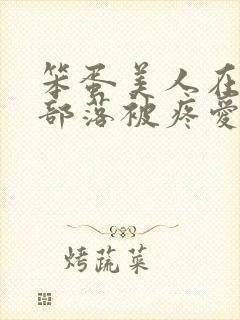 笨蛋美人在
部落被疼爱
烤蔬菜